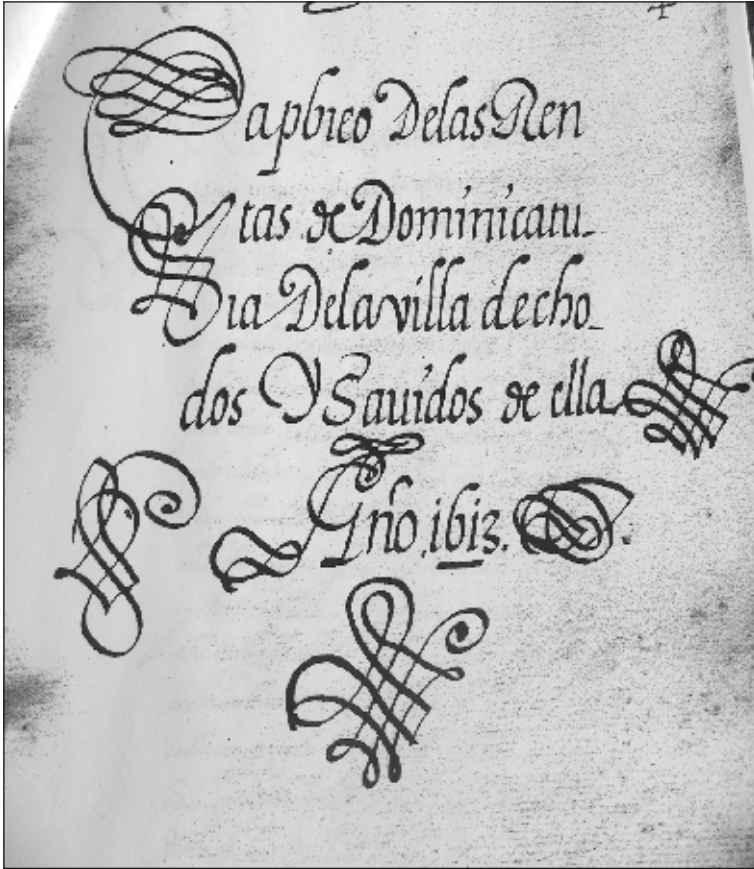 Capbreo Delas Ren
tas de Dominicatu_
ra Dela villa decho_
dos Y Sauidos de ella
Año .1613.